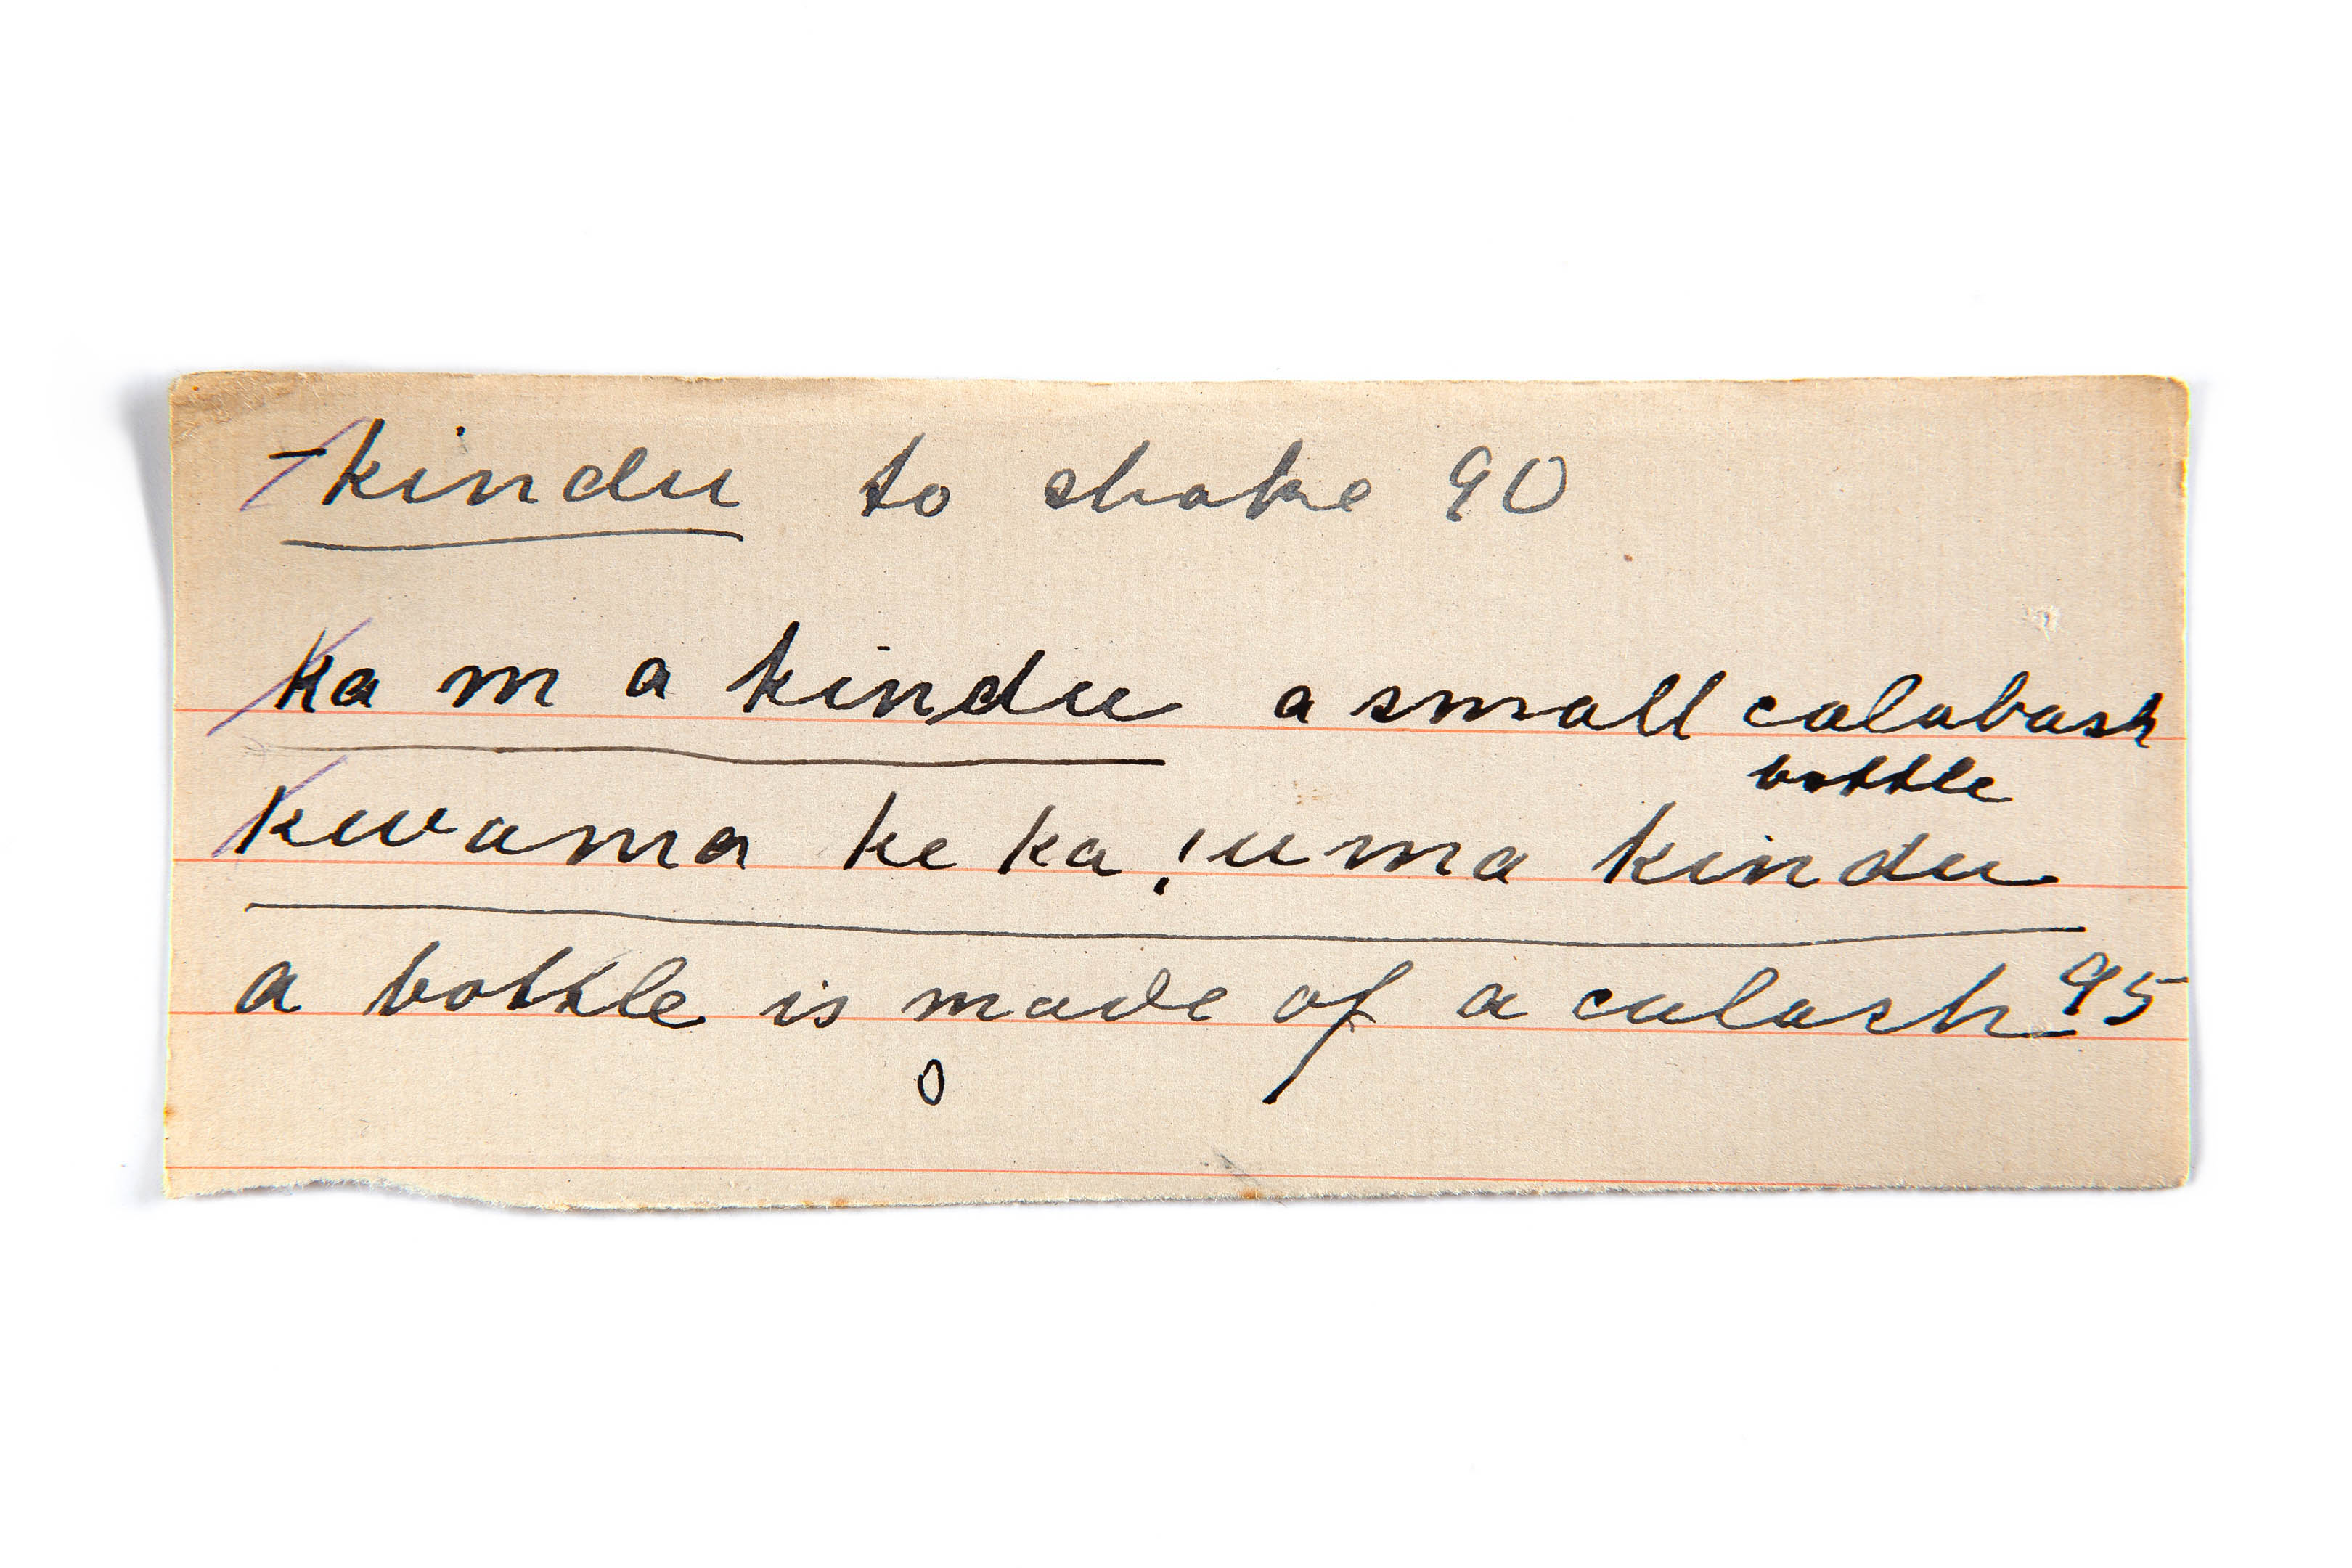 -kindu to shake 90
Ka m a kindu a small calabash
bottle
Kwama ke ka !uma kindu
a bottle is made of a calash 95